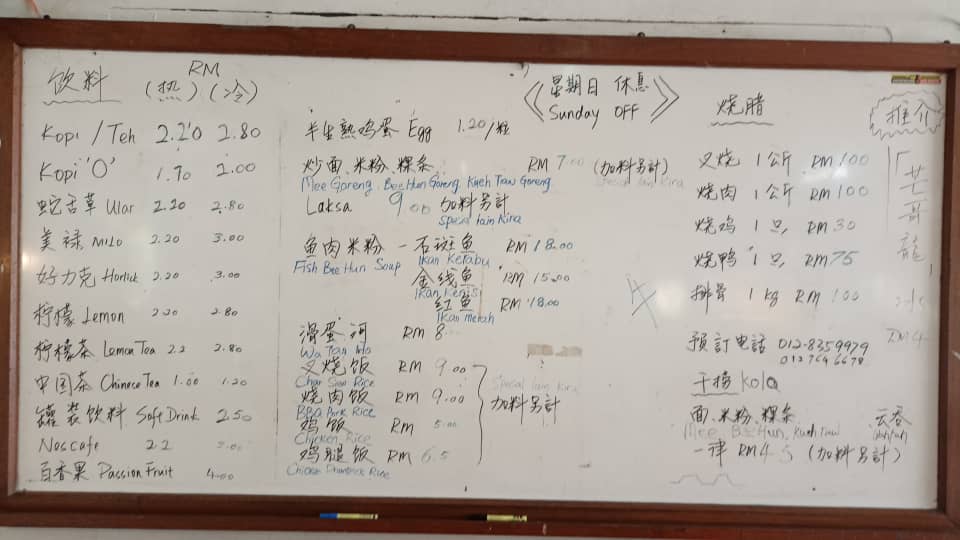 饮料 RM
(热) (冷)
Kopi / Teh 2.20 2.80
Kopi 'O' 1.70 2.00
蛇舌草 Ular 2.20 2.80
美禄 MILO 2.20 3.00
好力克 Horlick 2.20 3.00
柠檬 Lemon 2.20 2.80
柠檬茶 Lemon Tea 2.2 2.80
中国茶 Chinese Tea 1.00 1.20
罐装饮料 Soft Drink 2.50
Nescafe 2.2 3.00
百香果 Passion Fruit 4.00
《星期日 休息
Sunday OFF》
半生熟鸡蛋 Egg 1.20/粒
炒面、米粉、粿条 RM 7.00 (加料另計)
Mee Goreng, Bee Hun Goreng, Kueh Tiaw Goreng Special lain Kira
Laksa 9.00 加料另計
Special lain Kira
鱼肉米粉 - 石斑鱼 RM 18.00
Fish Bee Hun Soup Ikan Kerabu
金线鱼 RM 15.00
Ikan Kerisi
红鱼 RM 18.00
Ikan merah
滑蛋河 RM 8
Wa Tan Ho
叉烧饭 RM 9.00
Char Siew Rice
烧肉饭 RM 9.00
BBQ Pork Rice
鸡饭 RM 5.00
Chicken Rice
鸡腿饭 RM 6.5
Chicken Drumstick Rice
Special lain Kira
加料另計
烧腊
叉烧 1公斤 RM 100
烧肉 1公斤 RM 100
烧鸡 1只 RM 30
烧鸭 1只 RM 75
排骨 1 kg RM 100
预訂电話 012-8359929
012 764 6678
干捞 kolo
面、米粉、粿条 云吞
Mee, Bee Hun, Kueh Tiaw
一律 RM 4.5 (加料另計)
推介
RM 4